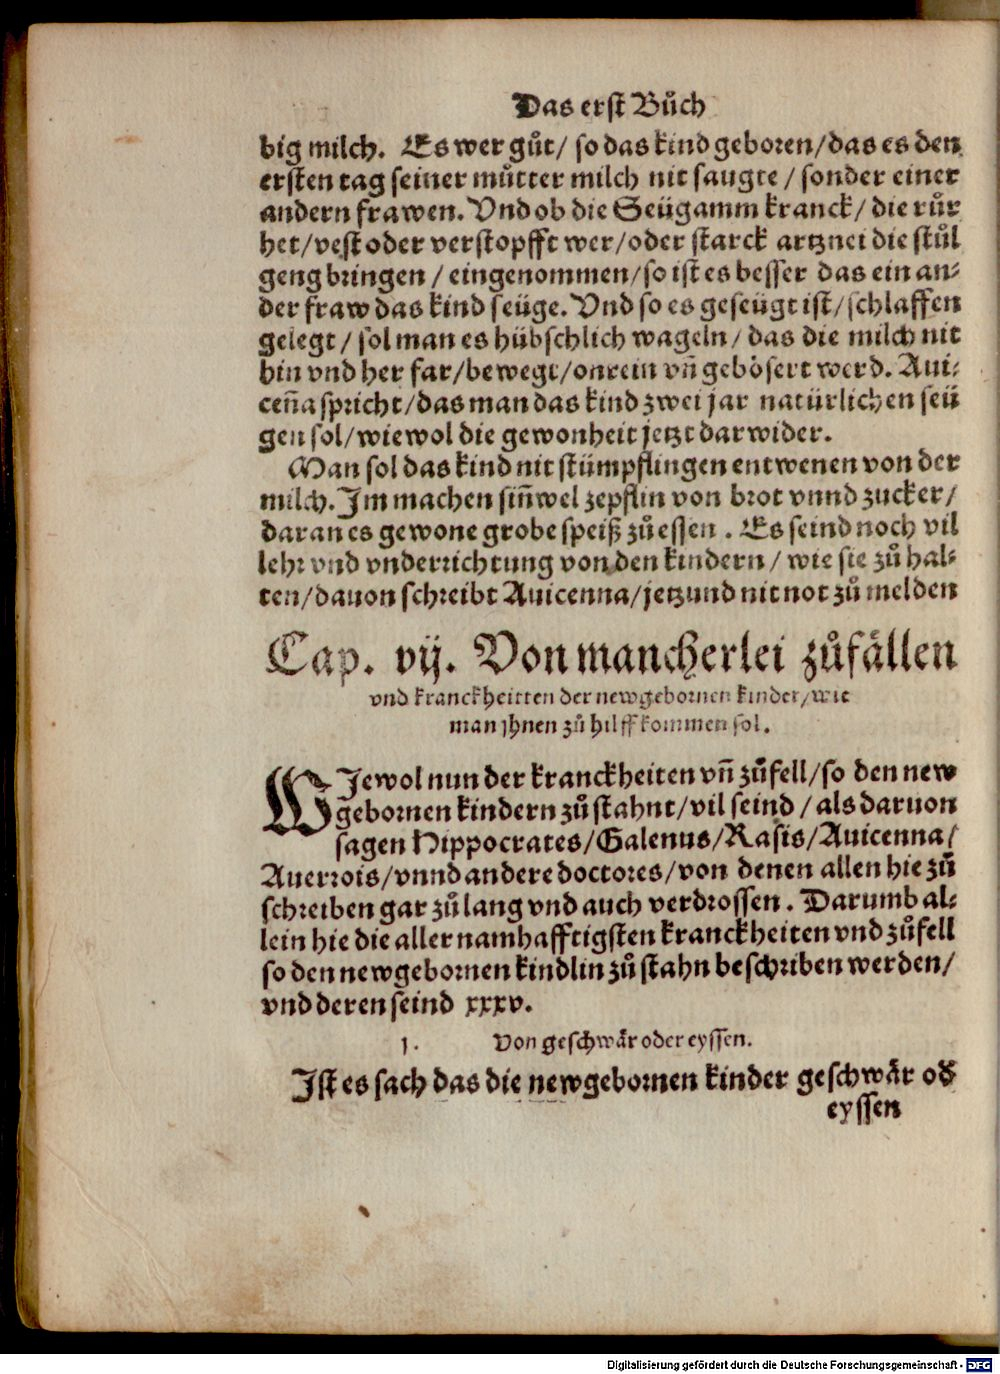 Das erst Bůch
big milch. Es wer gůt/ so das kind geboren/das es den
ersten tag seiner můtter milch nit saugte / sonder einer
andern frawen. Vnd ob die Seügamm kranck/ die růr
het/vest oder verstopfft wer/oder starck artznei die stůl
geng bringen / eingenommen/so ist es besser das ein an⸗
der fraw das kind seüge. Vnd so es geseügt ist/schlaffen
gelegt / sol man es hübschlich wageln/ das die milch nit
hin vnd her far/bewegt/onrein vñ gebösert werd. Aui⸗
ceña spricht/das man das kind zwei jar natürlichen seü
gen sol/wiewol die gewonheit jetzt darwider.
Man sol das kind nit stümpflingen entwenen von der
milch. Im machen siñwel zepflin von brot vnnd zucker/
daran es gewone grobe speiß zů essen . Es seind noch vil
lehr vnd vnderrichtung von den kindern / wie sie zů hal⸗
ten/dauon schreibt Auicenna/jetzund nit not zů melden
Cap. vij. Von mancherlei zůfällen
vnd kranckheitten der newgebornen kinder/wie
man jhnen zů hilff kommen sol.
WIewol nun der kranckheiten vñ zůfell/so den new
gebornen kindern zů stahnt/vil seind / als daruon
sagen Hippocrates/Galenus/Rasis/Auicenna/
Auerrois/vnnd andere doctores/von denen allen hie zů
schreiben gar zů lang vnd auch verdrossen . Darumb al⸗
lein hie die aller namhafftigsten kranckheiten vnd zůfell
so den newgebornen kindlin zů stahn beschriben werden/
vnd deren seind xxxv.
j. Von geschwär oder eyssen.
Ist es sach das die newgebornen kinder geschwär od
eyssen
Digitalisierung gefördert durch die Deutsche Forschungsgemeinschaft - DFG